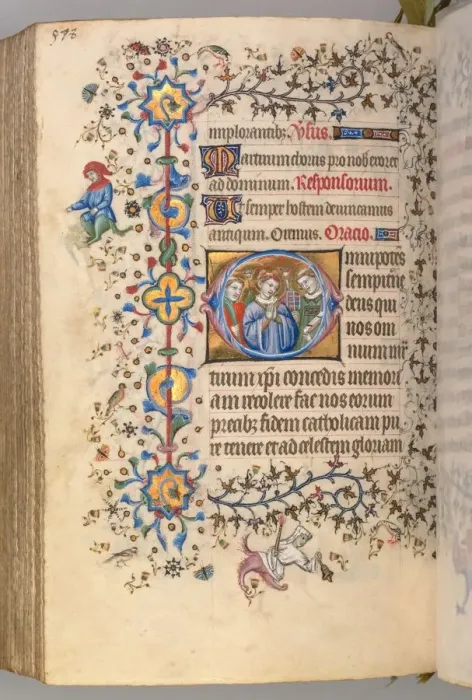 593
implorantibz. Vsus.
Martirum chorus pro nob exoret
ad dominum. Responsorium.
Ut semper hostem deuincamus
antiqum. Oremus. Oracio.
Omnipotēs
sempiterne
deus qui
nos om
nium mr̄
tirum xpi concedis memori
am recolere fac nos eorum
precibz fidem catholicam pu
re tenere et ad celestem gloriam